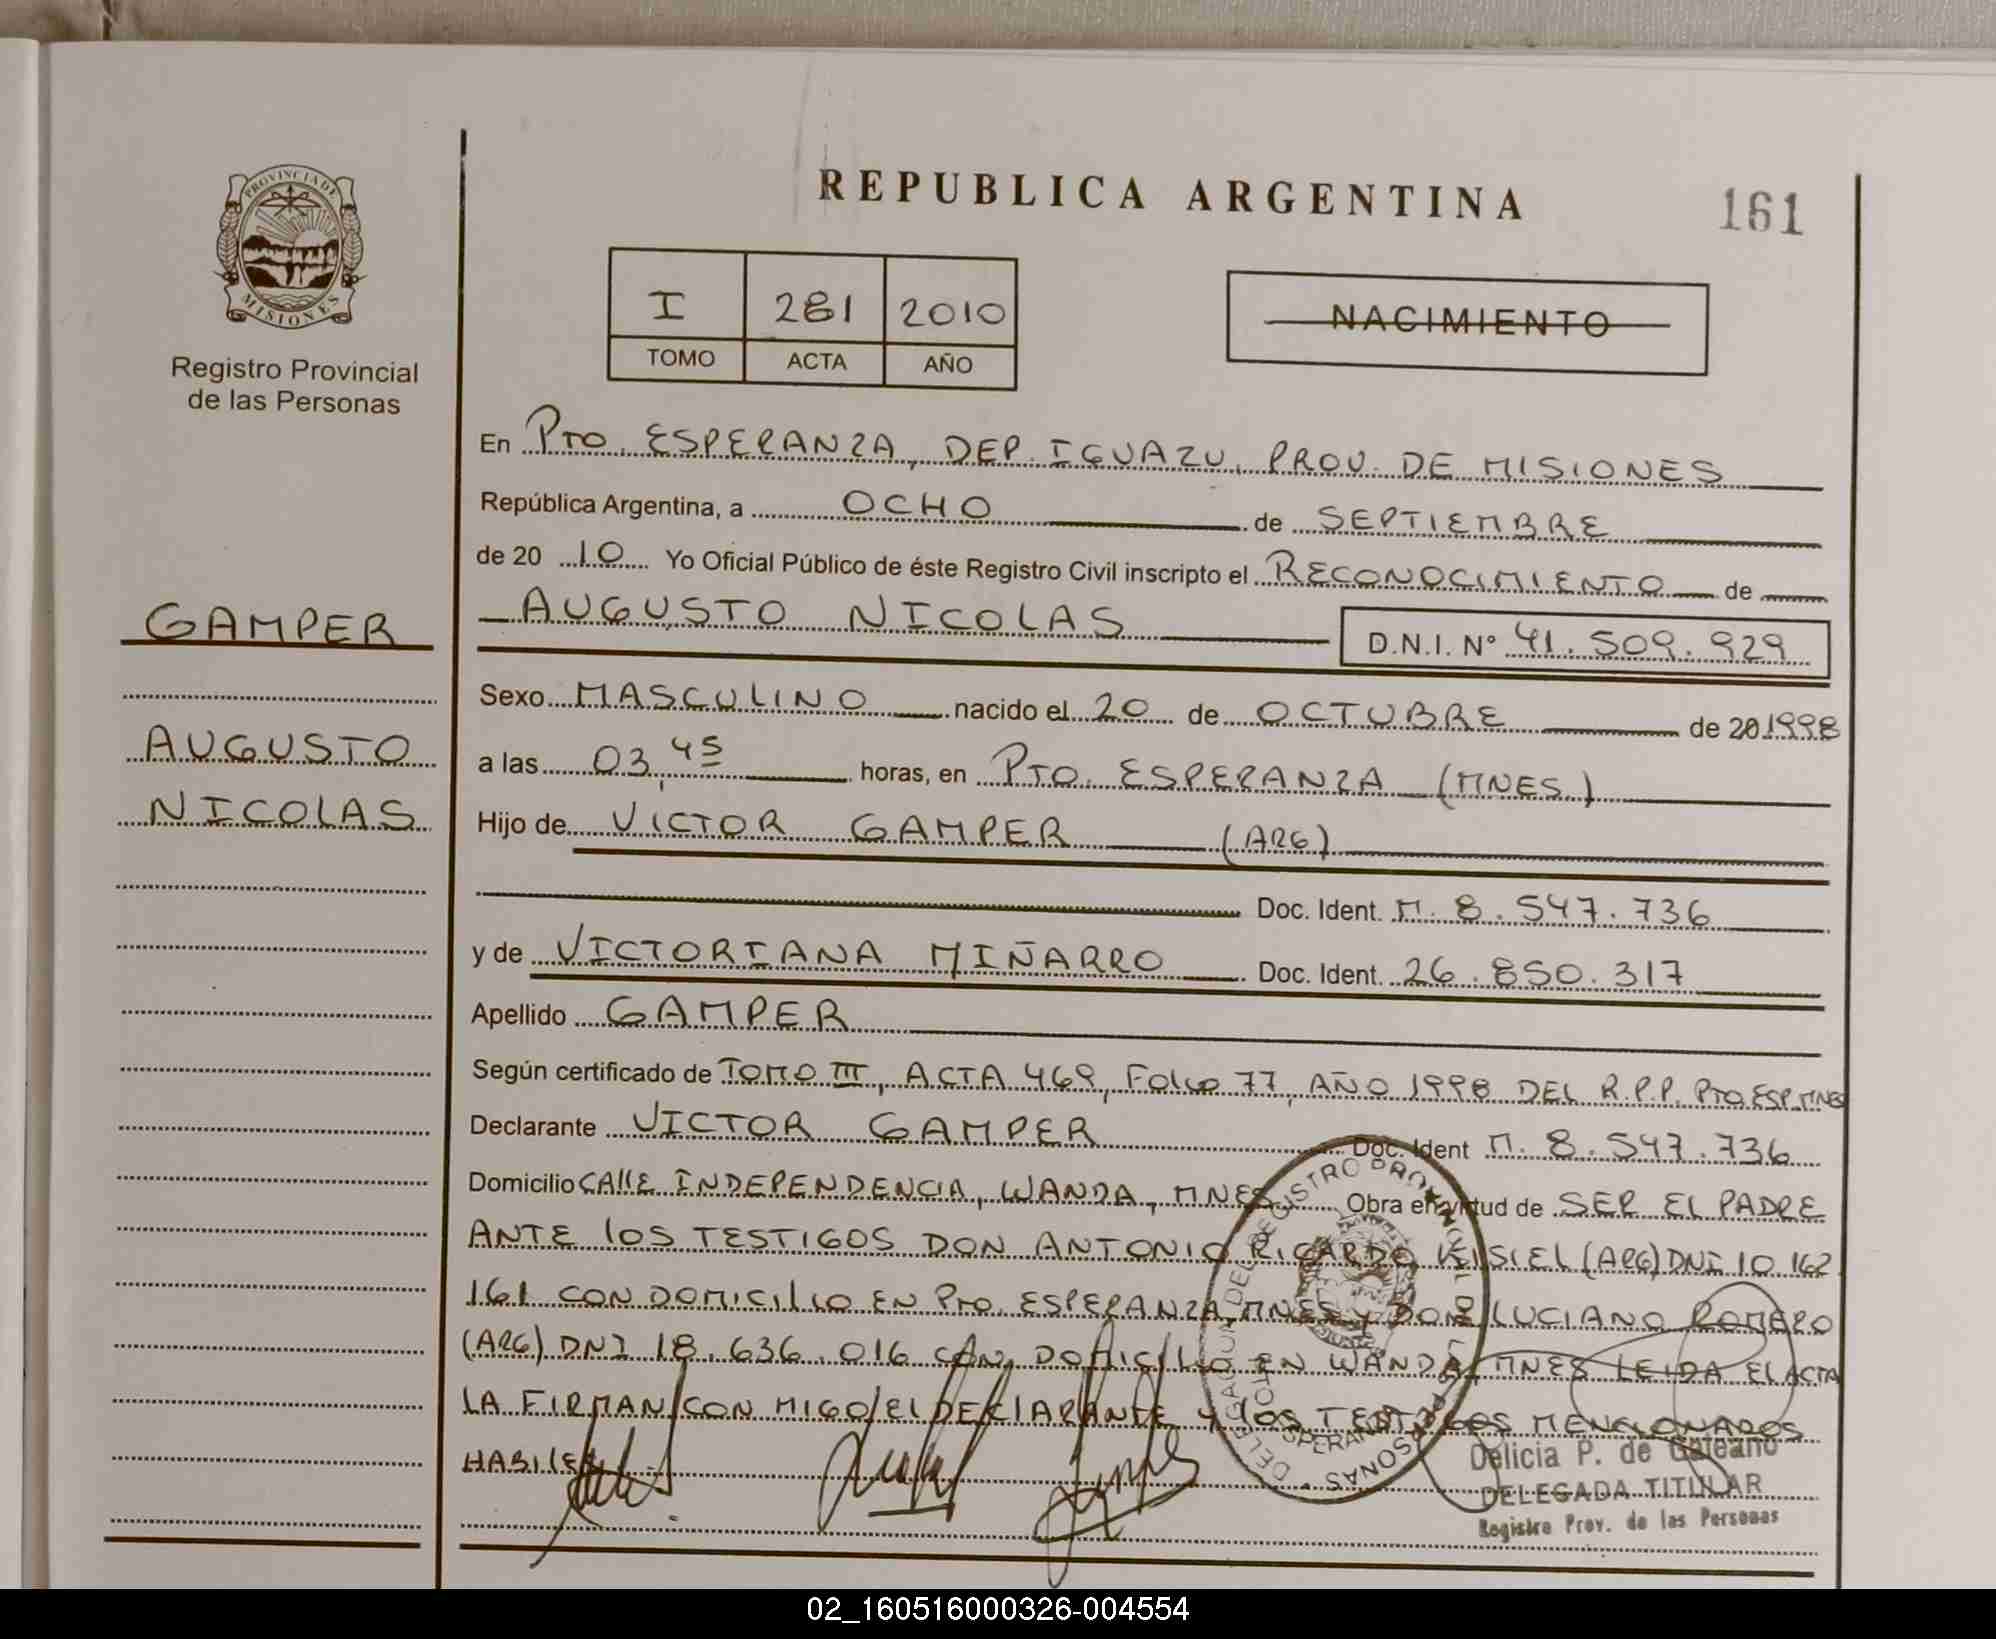 REPUBLICA ARGENTINA
161
PROVINCIA DE
MISIONES
Registro Provincial
de las Personas
I 281 2010
TOMO ACTA AÑO
NACIMIENTO
En PTO. ESPERANZA, DEP. IGUAZU, PROV. DE MISIONES
República Argentina, a OCHO de SEPTIEMBRE
de 20 10 Yo Oficial Público de éste Registro Civil inscripto el RECONOCIMIENTO de
AUGUSTO NICOLAS D.N.I. N° 41.509.929
GAMPER
AUGUSTO
NICOLAS
Sexo MASCULINO nacido el 20 de OCTUBRE de 20 1998
a las 03,45 horas, en PTO. ESPERANZA (MNES.)
Hijo de VICTOR GAMPER (ARG)
Doc. Ident. M. 8.547.736
y de VICTORIANA MIÑARRO Doc. Ident. 26.850.317
Apellido GAMPER
Según certificado de TOMO III, ACTA 469, FOLIO 77, AÑO 1998 DEL R.P.P. PTO.ESP.MNES
Declarante VICTOR GAMPER Doc. Ident M. 8.547.736
Domicilio CALLE INDEPENDENCIA, WANDA, MNES Obra en virtud de SER EL PADRE
ANTE LOS TESTIGOS DON ANTONIO RICARDO (ARG) DNI 10.162
161 CON DOMICILIO EN PTO. ESPERANZA MNES Y DON LUCIANO ROMERO
(ARG) DNI 18.636.016 CON DOMICILIO EN WANDA, MNES LEIDA EL ACTA
LA FIRMAN CON MIGO EL DECLARANTE Y LOS TESTIGOS MENCIONADOS
HABILES
DELEGACION DEL REGISTRO PROVINCIAL DE LAS PERSONAS
Delicia P. de Galeano
DELEGADA TITULAR
Registro Prov. de las Personas
02_160516000326-004554